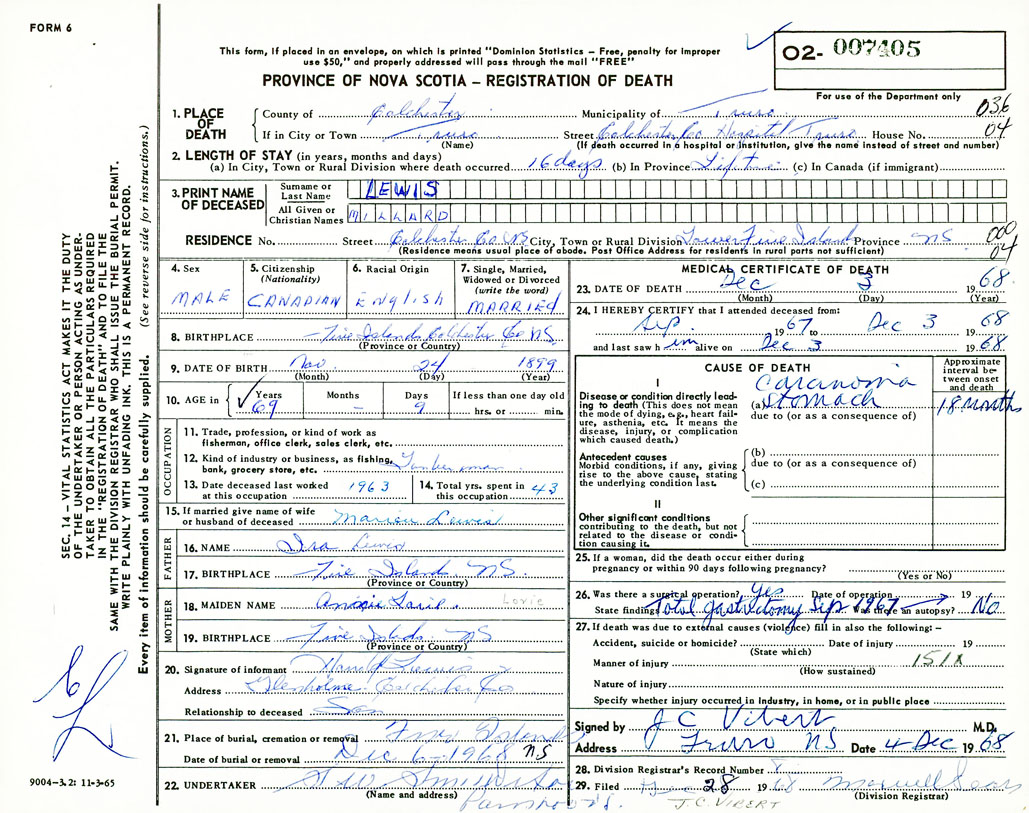 FORM 6
This form, if placed in an envelope, on which is printed "Dominion Statistics – Free, penalty for improper
use $50," and properly addressed will pass through the mail "FREE"
O2- 007405
PROVINCE OF NOVA SCOTIA – REGISTRATION OF DEATH
For use of the Department only
036
04
1. PLACE OF DEATH
County of Colchester Municipality of Truro
If in City or Town Truro Street Colchester Co Hospital Truro House No.
(Name) (If death occurred in a hospital or institution, give the name instead of street and number)
2. LENGTH OF STAY (in years, months and days)
(a) In City, Town or Rural Division where death occurred 16 days (b) In Province Lifetime (c) In Canada (if immigrant)
3. PRINT NAME OF DECEASED
Surname or Last Name LEWIS
All Given or Christian Names MILLARD
RESIDENCE No. Street Colchester Co NS City, Town or Rural Division Lower Five Island Province NS
000
04
(Residence means usual place of abode. Post Office Address for residents in rural parts not sufficient)
4. Sex
MALE
5. Citizenship
(Nationality)
CANADIAN
6. Racial Origin
English
7. Single, Married,
Widowed or Divorced
(write the word)
MARRIED
8. BIRTHPLACE Five Islands Colchester Co NS
(Province or Country)
9. DATE OF BIRTH Nov 24 1899
(Month) (Day) (Year)
10. AGE in Years Months Days If less than one day old
69 – 9 hrs. or min.
OCCUPATION
11. Trade, profession, or kind of work as
fisherman, office clerk, sales clerk, etc.
12. Kind of industry or business, as fishing,
bank, grocery store, etc.
13. Date deceased last worked
at this occupation 1963
14. Total yrs. spent in
this occupation 43
15. If married give name of wife
or husband of deceased Marion Lewis
FATHER
16. NAME Ira Lewis
17. BIRTHPLACE Five Islands NS.
(Province or Country)
MOTHER
18. MAIDEN NAME Lorie
19. BIRTHPLACE Five Islands, NS
(Province or Country)
20. Signature of informant Harold Lewis
Address Glenholme Colchester Co
Relationship to deceased Son
21. Place of burial, cremation or removal Five Islands
Date of burial or removal Dec 6 - 1968 NS
22. UNDERTAKER
(Name and address)
MEDICAL CERTIFICATE OF DEATH
23. DATE OF DEATH Dec 3 1968.
(Month) (Day) (Year)
24. I HEREBY CERTIFY that I attended deceased from:
Sep. 1967 to Dec 3 1968
and last saw him alive on Dec 3 1968.
CAUSE OF DEATH
Approximate
interval be-
tween onset
and death
I
Disease or condition directly lead-
ing to death (This does not mean
the mode of dying, e.g., heart fail-
ure, asthenia, etc. It means the
disease, injury, or complication
which caused death.)
Caranoma
(a) stomach 18 months
due to (or as a consequence of)
Antecedent causes
Morbid conditions, if any, giving
rise to the above cause, stating
the underlying condition last.
(b)
due to (or as a consequence of)
(c)
II
Other significant conditions
contributing to the death, but not
related to the disease or condi-
tion causing it.
25. If a woman, did the death occur either during
pregnancy or within 90 days following pregnancy?
(Yes or No)
26. Was there a surgical operation? Yes Date of operation 19
State findings Total gastrectomy Sep 1967 Was there an autopsy? No
27. If death was due to external causes (violence) fill in also the following: –
Accident, suicide or homicide? Date of injury 19
(State which)
Manner of injury 151X
(How sustained)
Nature of injury
Specify whether injury occurred in Industry, in home, or in public place
Signed by J C Vibert M.D.
Address Truro NS Date 4 Dec 1968
28. Division Registrar's Record Number
29. Filed Dec 28 1968 Maxwell Sears
J.C. VIBERT (Division Registrar)
SEC. 14 – VITAL STATISTICS ACT MAKES IT THE DUTY
OF THE UNDERTAKER OR PERSON ACTING AS UNDER-
TAKER TO OBTAIN ALL THE PARTICULARS REQUIRED
IN THE "REGISTRATION OF DEATH" AND TO FILE THE
SAME WITH THE DIVISION REGISTRAR WHO SHALL ISSUE THE BURIAL PERMIT.
WRITE PLAINLY WITH UNFADING INK. THIS IS A PERMANENT RECORD.
Every item of information should be carefully supplied. (See reverse side for instructions.)
9004–3.2: 11-3-65